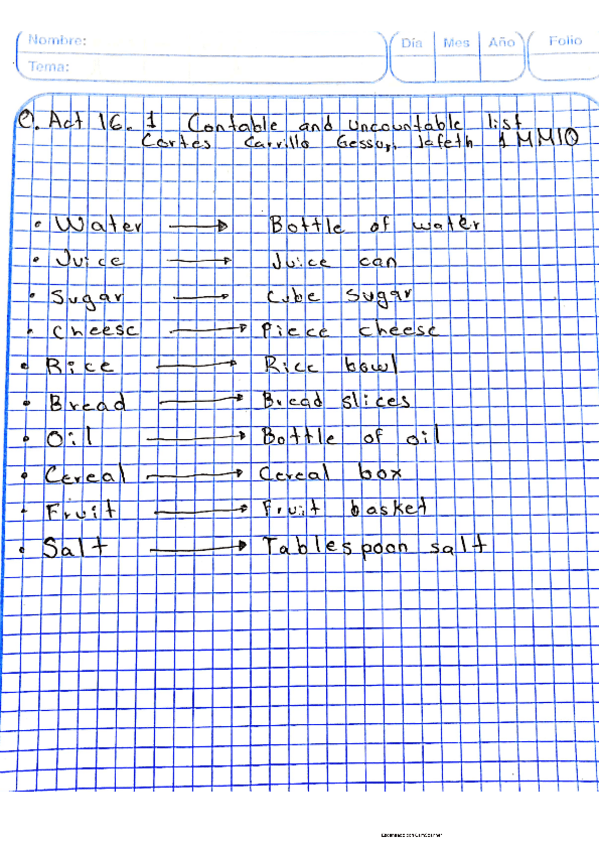 Nombre:
Día Mes Año Folio
Tema:
C. Act 16. 1 Contable and uncountable list
Cortes Carrillo Gessur Jafeth 1MM10
• Water → Bottle of water
• Juice → Juice can
• Sugar → Cube sugar
• cheese → Piece cheese
• Rice → Rice bowl
• Bread → Bread slices
• Oil → Bottle of oil
• Cereal → Cereal box
• Fruit → Fruit basket
• Salt → Tablespoon salt